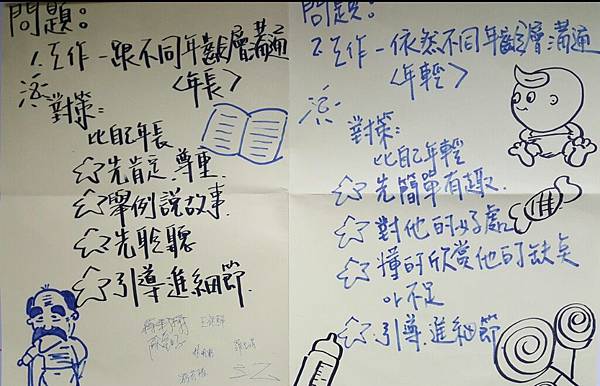 問題:
1.工作-跟不同年齡層溝通
<年長>
對策:
比自己年長
先肯定.尊重
舉例說故事
先聆聽
引導進細節
問題:
2.工作-依然不同年齡層溝通
<年輕>
對策:
比自己年輕
先簡單有趣.
對他的好處
懂的欣賞他的缺失
or不足
引導.進細節